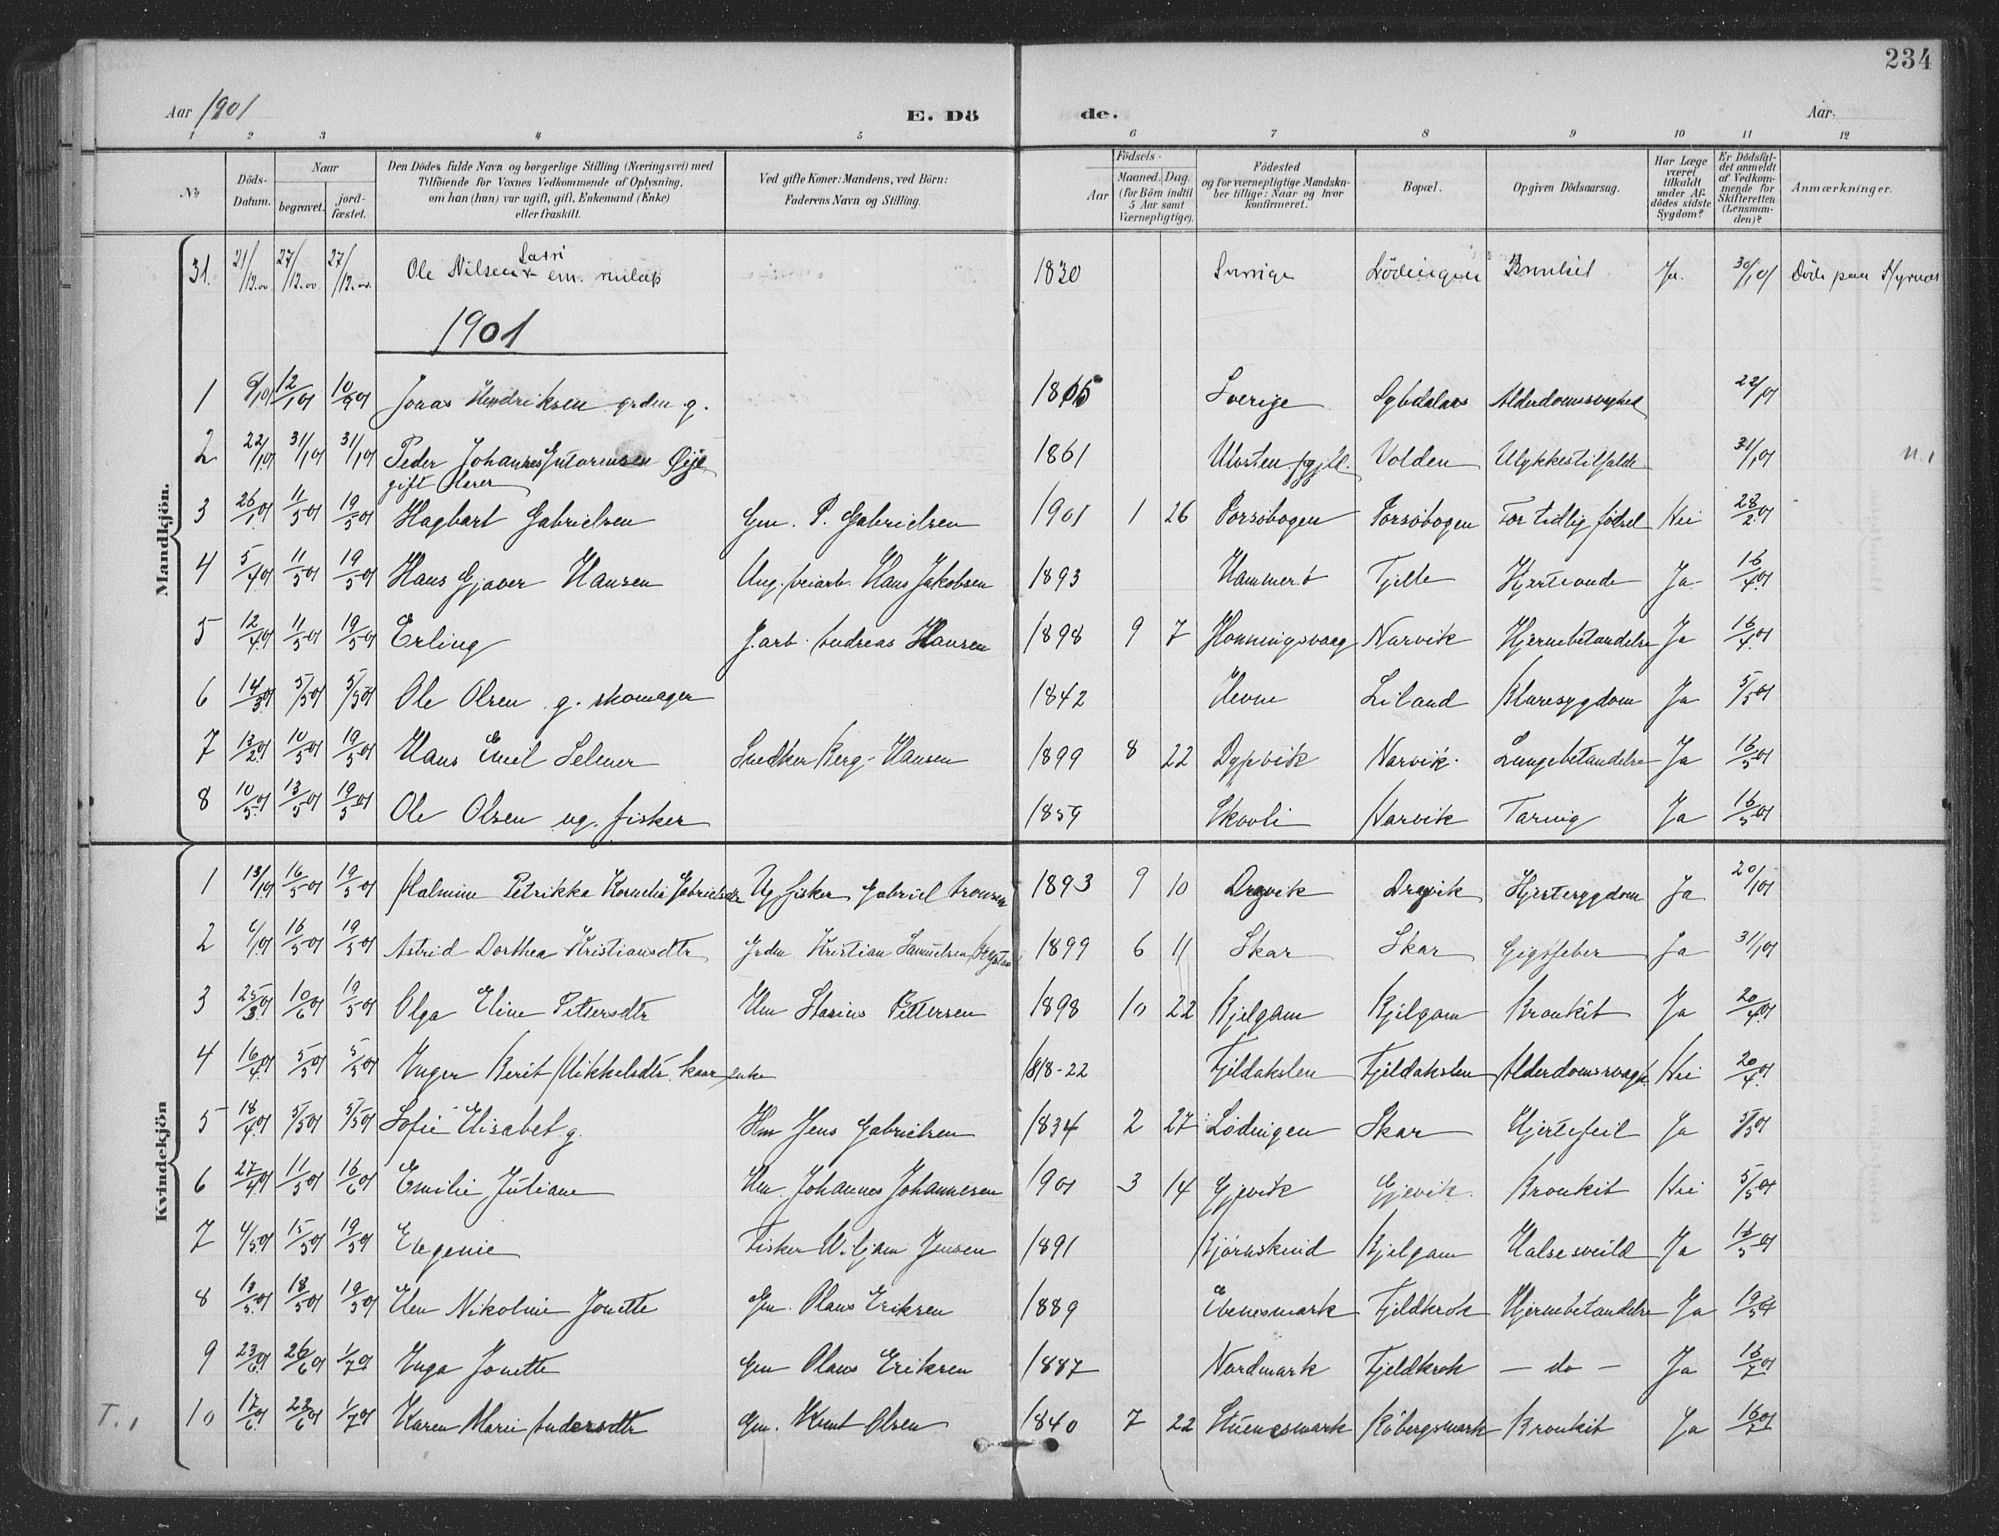 234
Aar 1901 E. Dö de. Aar
1 2 3 4 5 6 7 8 9 10 11 12
No Döds-Datum. Naar begravet. jordfæstet. Den Dödes fulde Navn og borgerlige Stilling (Næringsvei) med Tilföiende for Voxnes Vedkommende af Oplysning, om han (hun) var ugift, gift, Enkemand (Enke) eller fraskilt. Ved gifte Koner: Mandens, ved Börn: Faderens Navn og Stilling. Födsels- Aar Maaned. Dag. (for Börn indtil 5 Aar samt Værnepligtige). Födested og for værnepligtige Mandskaber tillige: Naar og hvor konfirmeret. Bopæl. Opgiven Dödsaarsag. Har Læge været tilkaldt under Afdödes sidste Sygdom? Er Dödsfaldet anmeldt af Vedkommende for Skifteretten (Lensmanden)? Anmærkninger.
Mandkjön.
Sarri
31. 21/12.00 27/12.00 27/12.00 Ole Nilsen em. 1830 Lödingen Ja. 30/1 01 Döde paa
1901
1 12/1 01 Jonas Hendriksen grdm g. Sverige 22/1 01
2 22/1 01 31/1 01 31/1 01 Peder Johannes Øije 1861 Volden Ulykkestilfælde 31/1 01
gift
3 26/1 01 11/5 01 19/5 01 Hagbart Gabrielsen Gm. P. Gabrielsen 1901 1 26 Forsøbogen Forsøbogen For tidlig fødsel Nei 28/2 01
4 5/4 01 11/5 01 19/5 01 Hans Gjæver Hansen Ung. veiarb. Hans Jakobsen 1893 Hammerö Fjelde Hjerteonde Ja 16/4 01
5 12/4 01 11/5 01 19/5 01 Erling J.arb. Andreas Hansen 1898 9 7 Honningsvaag Narvik Hjernebetændelse Ja 16/4 01
6 14/3 01 5/5 01 5/5 01 Ole Olsen g. skomager 1842 Hevne Liland Blæresygdom Ja 5/5 01
7 13/2 01 10/5 01 19/5 01 Hans Emil Selmer Snedker Berg-Hansen 1899 8 22 Dypvik Narvik. Lungebetændelse Ja 16/5 01
8 10/5 01 13/5 01 19/5 01 Ole Olsen ug. fisker 1859 Skovli Narvik Tæring Ja 16/5 01
Kvindekjön
1 13/1 01 16/5 01 19/5 01 Halmine Petrikka Kornelia Gabrielsdtr Ug. fisker Gabriel Aronsen 1893 9 10 Drgvik Drgvik Hjertesygdom Ja 20/1 01
2 16/5 01 19/5 01 Astrid Dorthea Kristiansdtr Grdm. Kristian Samuelsen 1899 6 11 Skar Skar Gigtfeber Ja 31/1 01
3 25/3 01 10/6 01 19/5 01 Olga Eline Pettersdtr Hm Pettersen 1898 10 22 Kjelgam Kjelgam Bronkit Ja 20/4 01
4 16/4 01 5/5 01 5/5 01 Inger Berit Mikkelsdtr. enke 1818-22 Fjeldakslen Fjeldakslen Alderdomssvagh. Nei 20/4 01
5 18/4 01 5/5 01 5/5 01 Sofie Elisabet g. Hm Jens Gabrielsen 1834 2 27 Lødingen Skar Hjertefeil Ja 5/5 01
6 27/4 01 11/5 01 16/6 01 Emilie Juliane Hm. Johannes Johannesen 1901 3 14 Gjevik Gjevik Bronkit Nei 5/5 01
7 4/5 01 15/5 01 19/5 01 Evgenie Fisker Wiljam Jensen 1891 Bjørnskind Kjelgam Halsesvuld Ja 16/5 01
8 13/5 01 18/5 01 19/5 01 Elen Nikoline Jonette Gm. Olaus Eriksen 1889 Evenesmark Fjeldkrok Hjernebetændelse Ja 19/5 01
9 23/6 01 26/6 01 1/7 01 Inga Jonette Gm Olaus Eriksen 1887 Nordmark Fjeldkrok – do – Ja 16/7 01
T. 1 10 17/6 01 23/6 01 1/7 01 Karen Marie Andersdtr Gm. Knut Olsen 1840 7 22 Stuenesmark Røbergsmark Bronkit Ja 16/7 01